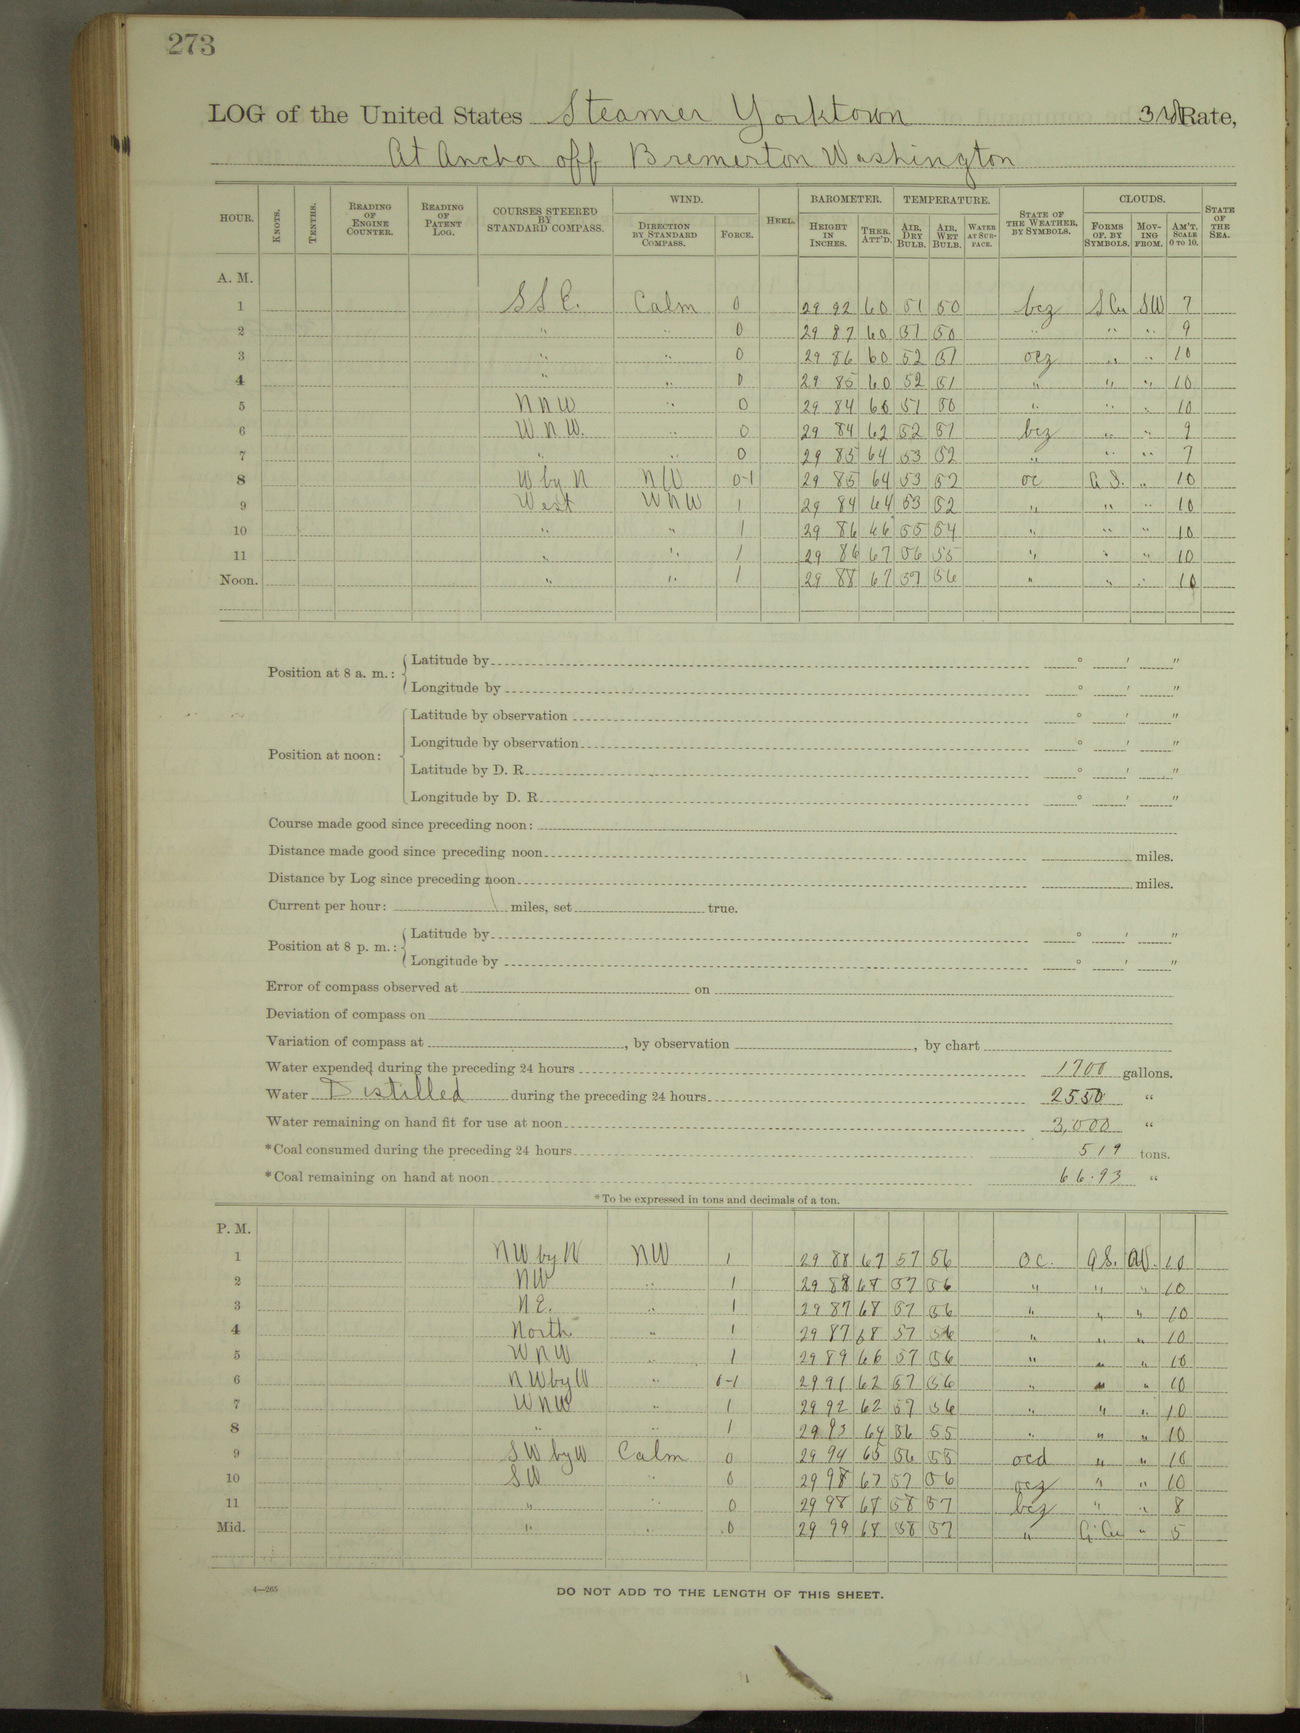 273
LOG of the United States Steamer Yorktown 3rd Rate,
At Anchor off Bremerton Washington
HOUR. KNOTS. TENTHS. READING OF ENGINE COUNTER. READING OF PATENT LOG. COURSES STEERED BY STANDARD COMPASS. WIND. DIRECTION BY STANDARD COMPASS. FORCE. HEEL. BAROMETER. HEIGHT IN INCHES. THER. ATT'D. TEMPERATURE. AIR, DRY BULB. AIR, WET BULB. WATER AT SURFACE. STATE OF THE WEATHER, BY SYMBOLS. CLOUDS. FORMS OF, BY SYMBOLS. MOVING FROM. AM'T. SCALE 0 TO 10. STATE OF THE SEA.
A. M.
1 S S E. Calm 0 29 92 60 51 50 bcz S Cu SW 7
2 " " 0 29 87 60 51 50 " " " 9
3 " " 0 29 86 60 52 51 ocz " " 10
4 " " 0 29 85 60 52 51 " " " 10
5 N N W " 0 29 84 60 51 50 " " " 10
6 W N W. " 0 29 84 62 52 51 bcz " " 9
7 " " 0 29 85 64 53 52 " " " 7
8 W by N NW 0-1 29 85 64 53 52 oc A S. " 10
9 West WNW 1 29 84 64 53 52 " " " 10
10 " " 1 29 86 66 55 54 " " " 10
11 " " 1 29 86 67 56 55 " " " 10
Noon. " " 1 29 88 67 57 56 " " " 10
Position at 8 a. m.: Latitude by ° ′ ″
Longitude by ° ′ ″
Position at noon: Latitude by observation ° ′ ″
Longitude by observation ° ′ ″
Latitude by D. R. ° ′ ″
Longitude by D. R. ° ′ ″
Course made good since preceding noon:
Distance made good since preceding noon miles.
Distance by Log since preceding noon miles.
Current per hour: miles, set true.
Position at 8 p. m.: Latitude by ° ′ ″
Longitude by ° ′ ″
Error of compass observed at on
Deviation of compass on
Variation of compass at , by observation , by chart
Water expended during the preceding 24 hours 1700 gallons.
Water Distilled during the preceding 24 hours 2550 "
Water remaining on hand fit for use at noon 3,000 "
*Coal consumed during the preceding 24 hours 519 tons.
*Coal remaining on hand at noon 66.93 "
*To be expressed in tons and decimals of a ton.
P. M.
1 NW by N NW 1 29 88 67 57 56 oc. A S. 10
2 NW " 1 29 88 68 57 56 " " " 10
3 N E. " 1 29 87 68 57 56 " " " 10
4 North " 1 29 87 68 57 56 " " " 10
5 W N W " 1 29 89 66 57 56 " " " 10
6 N W by W " 0-1 29 91 62 57 56 " " " 10
7 W N W " 1 29 92 62 57 56 " " " 10
8 " " 1 29 93 64 56 55 " " " 10
9 S W by W Calm 0 29 94 65 56 55 ocd " " 10
10 S W " 0 29 98 67 57 56 ocz " " 10
11 " " 0 29 98 68 58 57 bcz " " 8
Mid. " " 0 29 99 68 58 57 " Ci Cu " 5
4—265
DO NOT ADD TO THE LENGTH OF THIS SHEET.